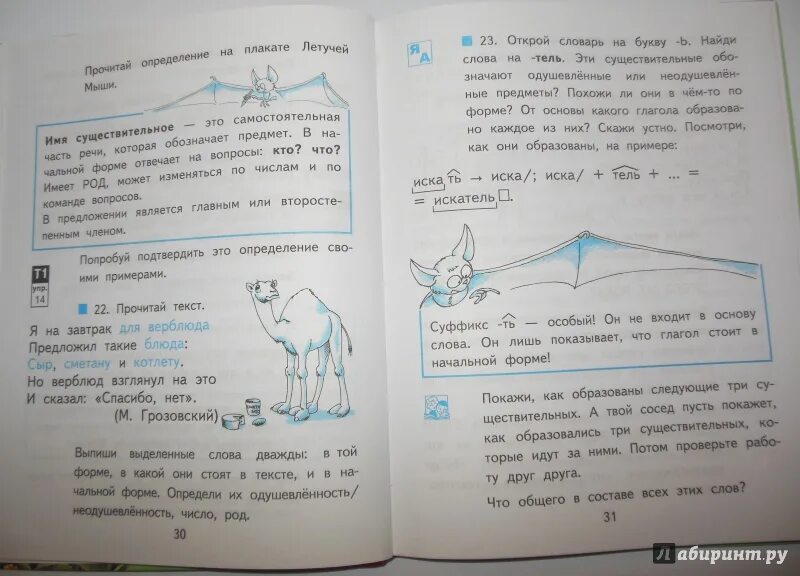 Прочитай определение на плакате Летучей
Мыши.
Имя существительное — это самостоятельная
часть речи, которая обозначает предмет. В на-
чальной форме отвечает на вопросы: кто? что?
Имеет РОД, может изменяться по числам и по
команде вопросов.
В предложении является главным или второсте-
пенным членом.
Т1
упр.
14
Попробуй подтвердить это определение сво-
ими примерами.
22. Прочитай текст.
Я на завтрак для верблюда
Предложил такие блюда:
Сыр, сметану и котлету.
Но верблюд взглянул на это
И сказал: «Спасибо, нет».
(М. Грозовский)
Выпиши выделенные слова дважды: в той
форме, в какой они стоят в тексте, и в на-
чальной форме. Определи их одушевлённость/
неодушевлённость, число, род.
30
Я
А
23. Открой словарь на букву -Ь. Найди
слова на -тель. Эти существительные обо-
значают одушевлённые или неодушевлён-
ные предметы? Похожи ли они в чём-то по
форме? От основы какого глагола образова-
но каждое из них? Скажи устно. Посмотри,
как они образованы, на примере:
искать → иска/; иска/ + тель + ... =
= искатель□.
Суффикс -ть — особый! Он не входит в основу
слова. Он лишь показывает, что глагол стоит в
начальной форме!
Покажи, как образованы следующие три су-
ществительных. А твой сосед пусть покажет,
как образовались три существительных, ко-
торые идут за ними. Потом проверьте рабо-
ту друг друга.
Что общего в составе всех этих слов?
31
Лабиринт.ру